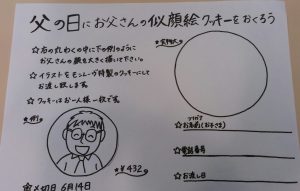 父の日にお父さんの似顔絵クッキーをおくろう
☆右の丸わくの中に下の例のように
お父さんの顔を大きく描いて下さい。
☆イラストをモンレーヴ特製のクッキーにして
お渡し致します。
☆クッキーはお一人様一枚です。
☆例☆
☆¥432☆
〆切日 6月14日
☆実物大☆
フリガナ
☆お名前(お子さま)
☆電話番号
☆お渡し日